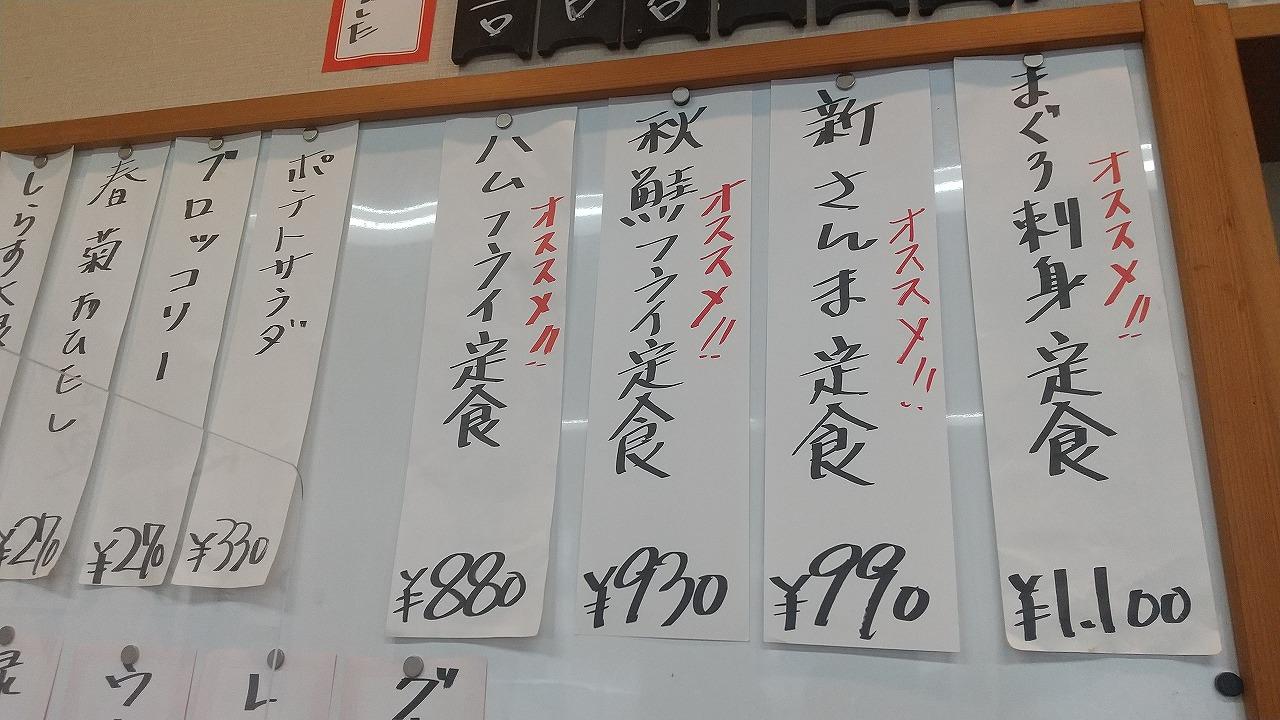 まぐろ刺身定食
オススメ!!
¥1.100
新さんま定食
オススメ!!
¥990
秋鮭フライ定食
オススメ!!
¥930
ハムフライ定食
オススメ!!
¥880
ポテトサラダ
¥330
ブロッコリー
¥270
春菊おひたし
¥270
しらす